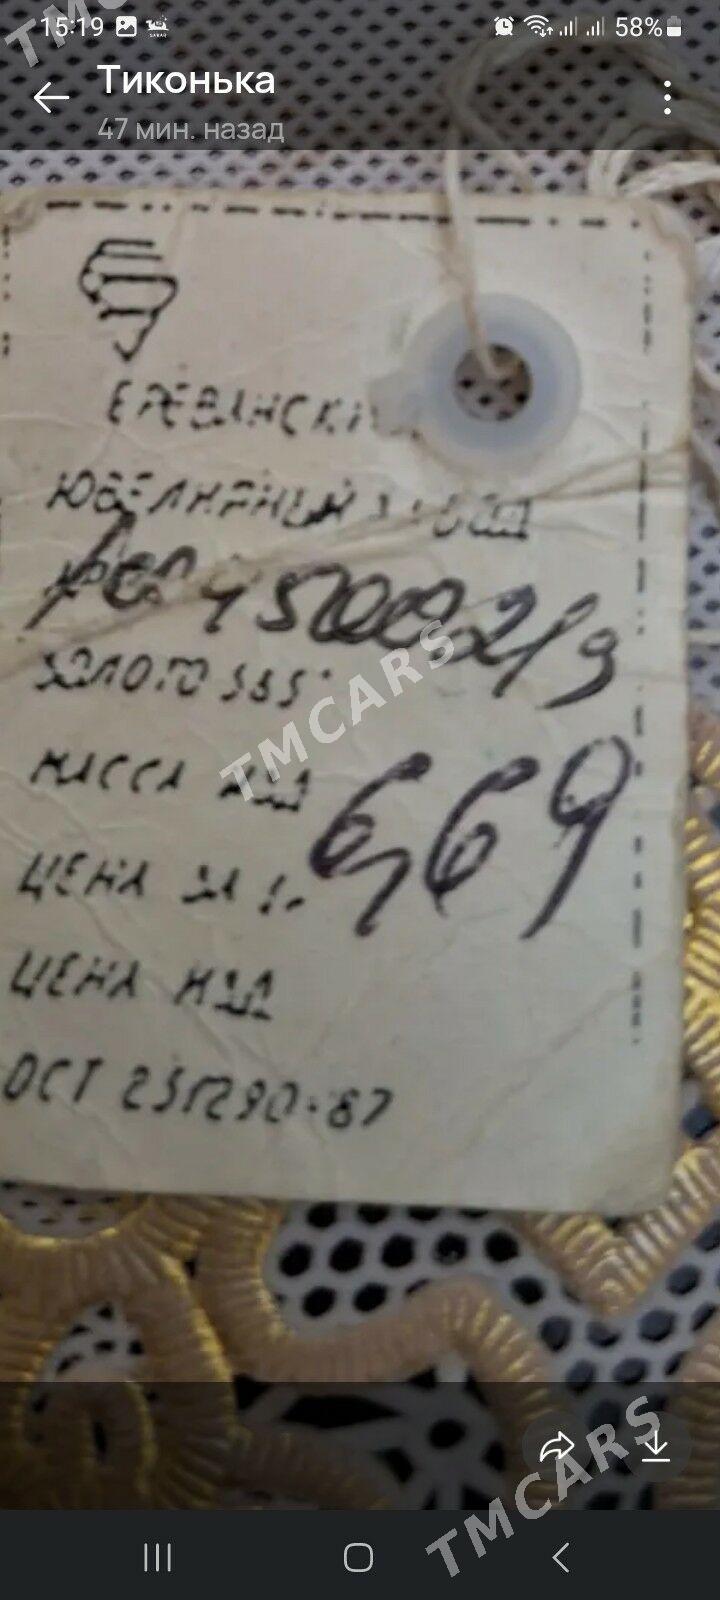 15:19
58%
Тиконька
47 мин. назад
ЕРЕВАНСКИ
ЮВЕЛИРНЫЙ ЗАВОД
ЗОЛОТО 585°
МАССА ИЗД 6,69
ЦЕНА ЗА 1г.
ЦЕНА ИЗД
ОСТ 251290-87
TMCARS
TMCARS